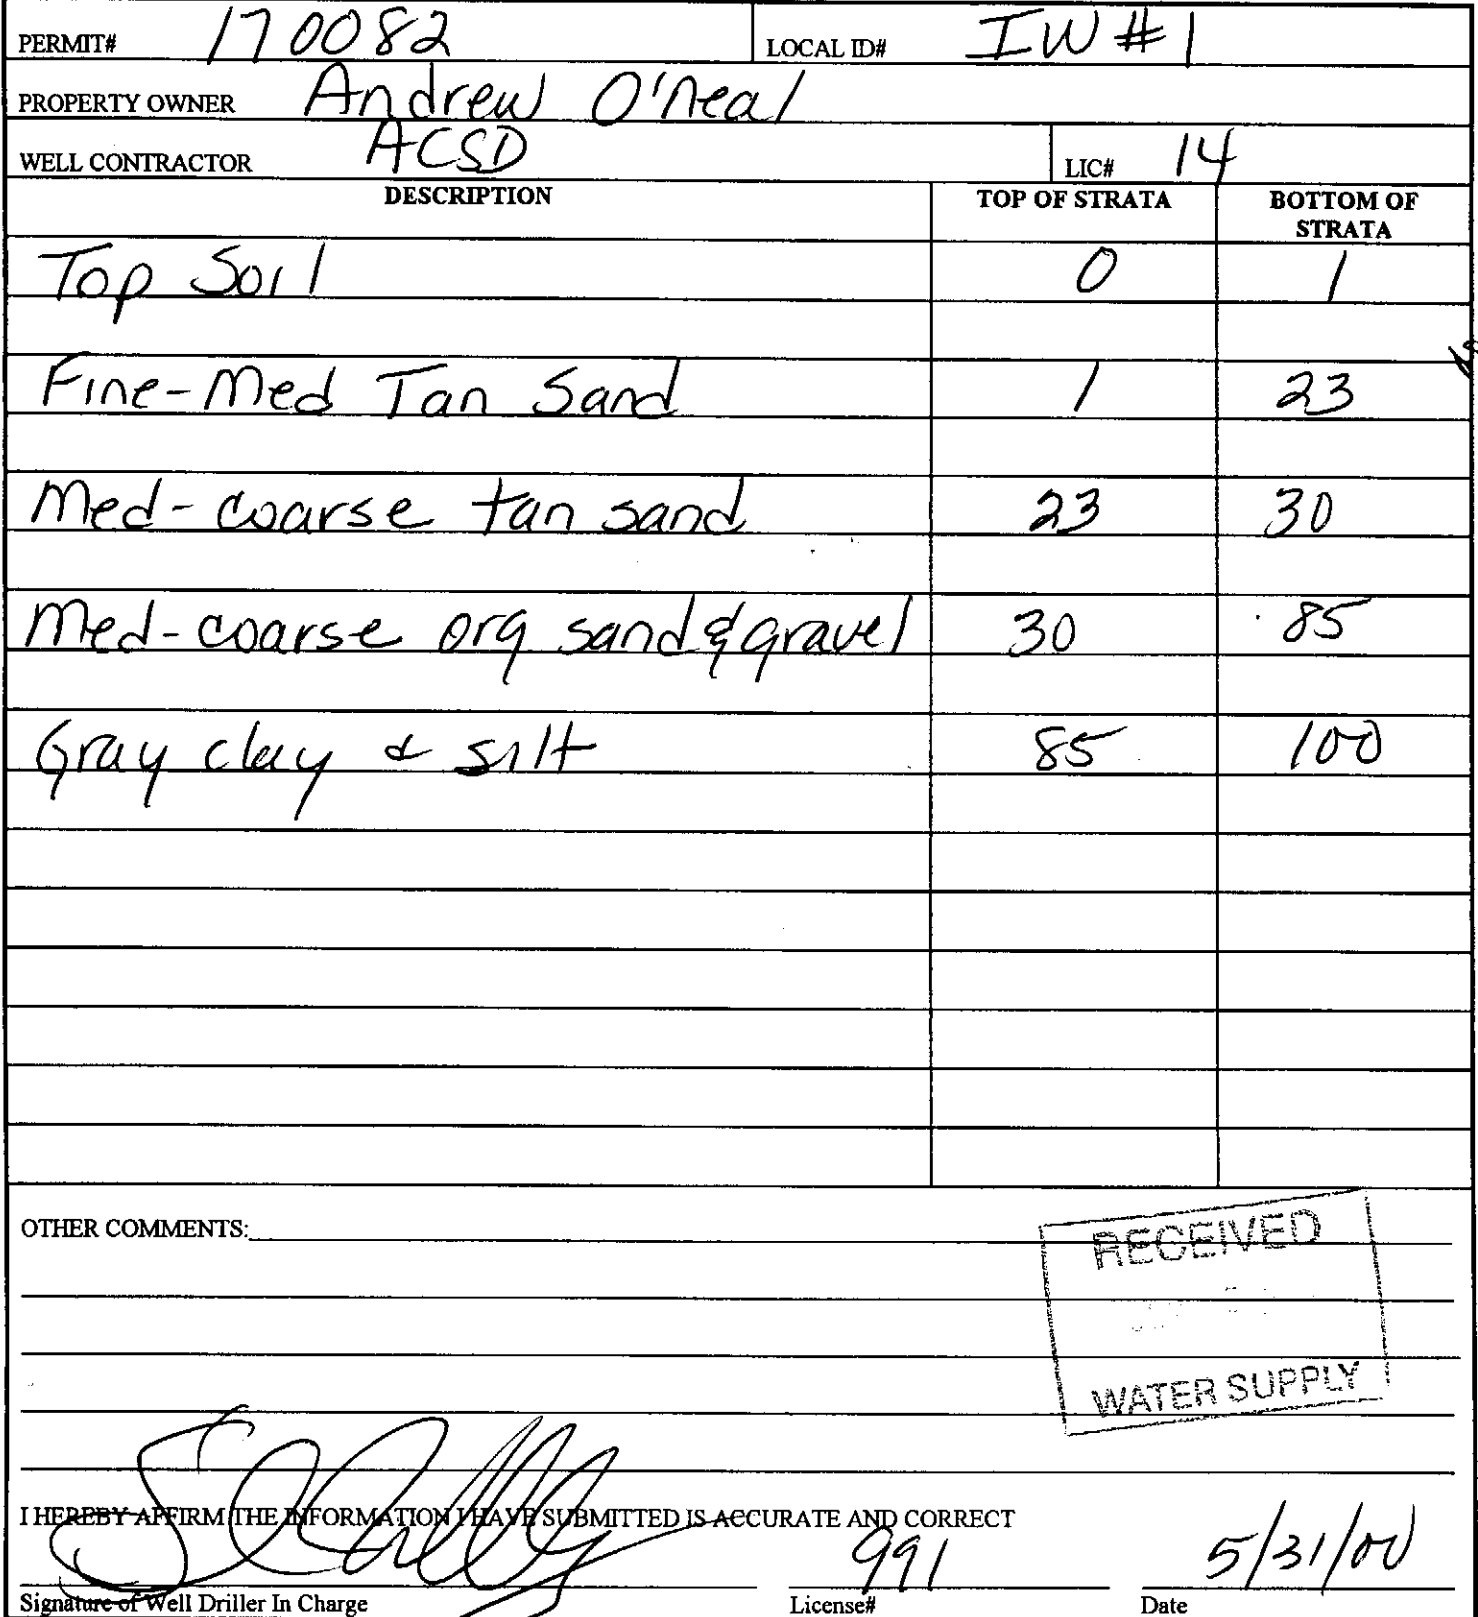 PERMIT# 170082 LOCAL ID# IW #1
PROPERTY OWNER Andrew O'neal
WELL CONTRACTOR ACSD LIC# 14
DESCRIPTION TOP OF STRATA BOTTOM OF STRATA
Top Soil 0 1
Fine-Med Tan Sand 1 23
Med-coarse tan sand 23 30
Med-coarse org sand & gravel 30 85
Gray clay & silt 85 100
OTHER COMMENTS:
RECEIVED
WATER SUPPLY
I HEREBY AFFIRM THE INFORMATION I HAVE SUBMITTED IS ACCURATE AND CORRECT
991 5/31/00
Signature of Well Driller In Charge License# Date